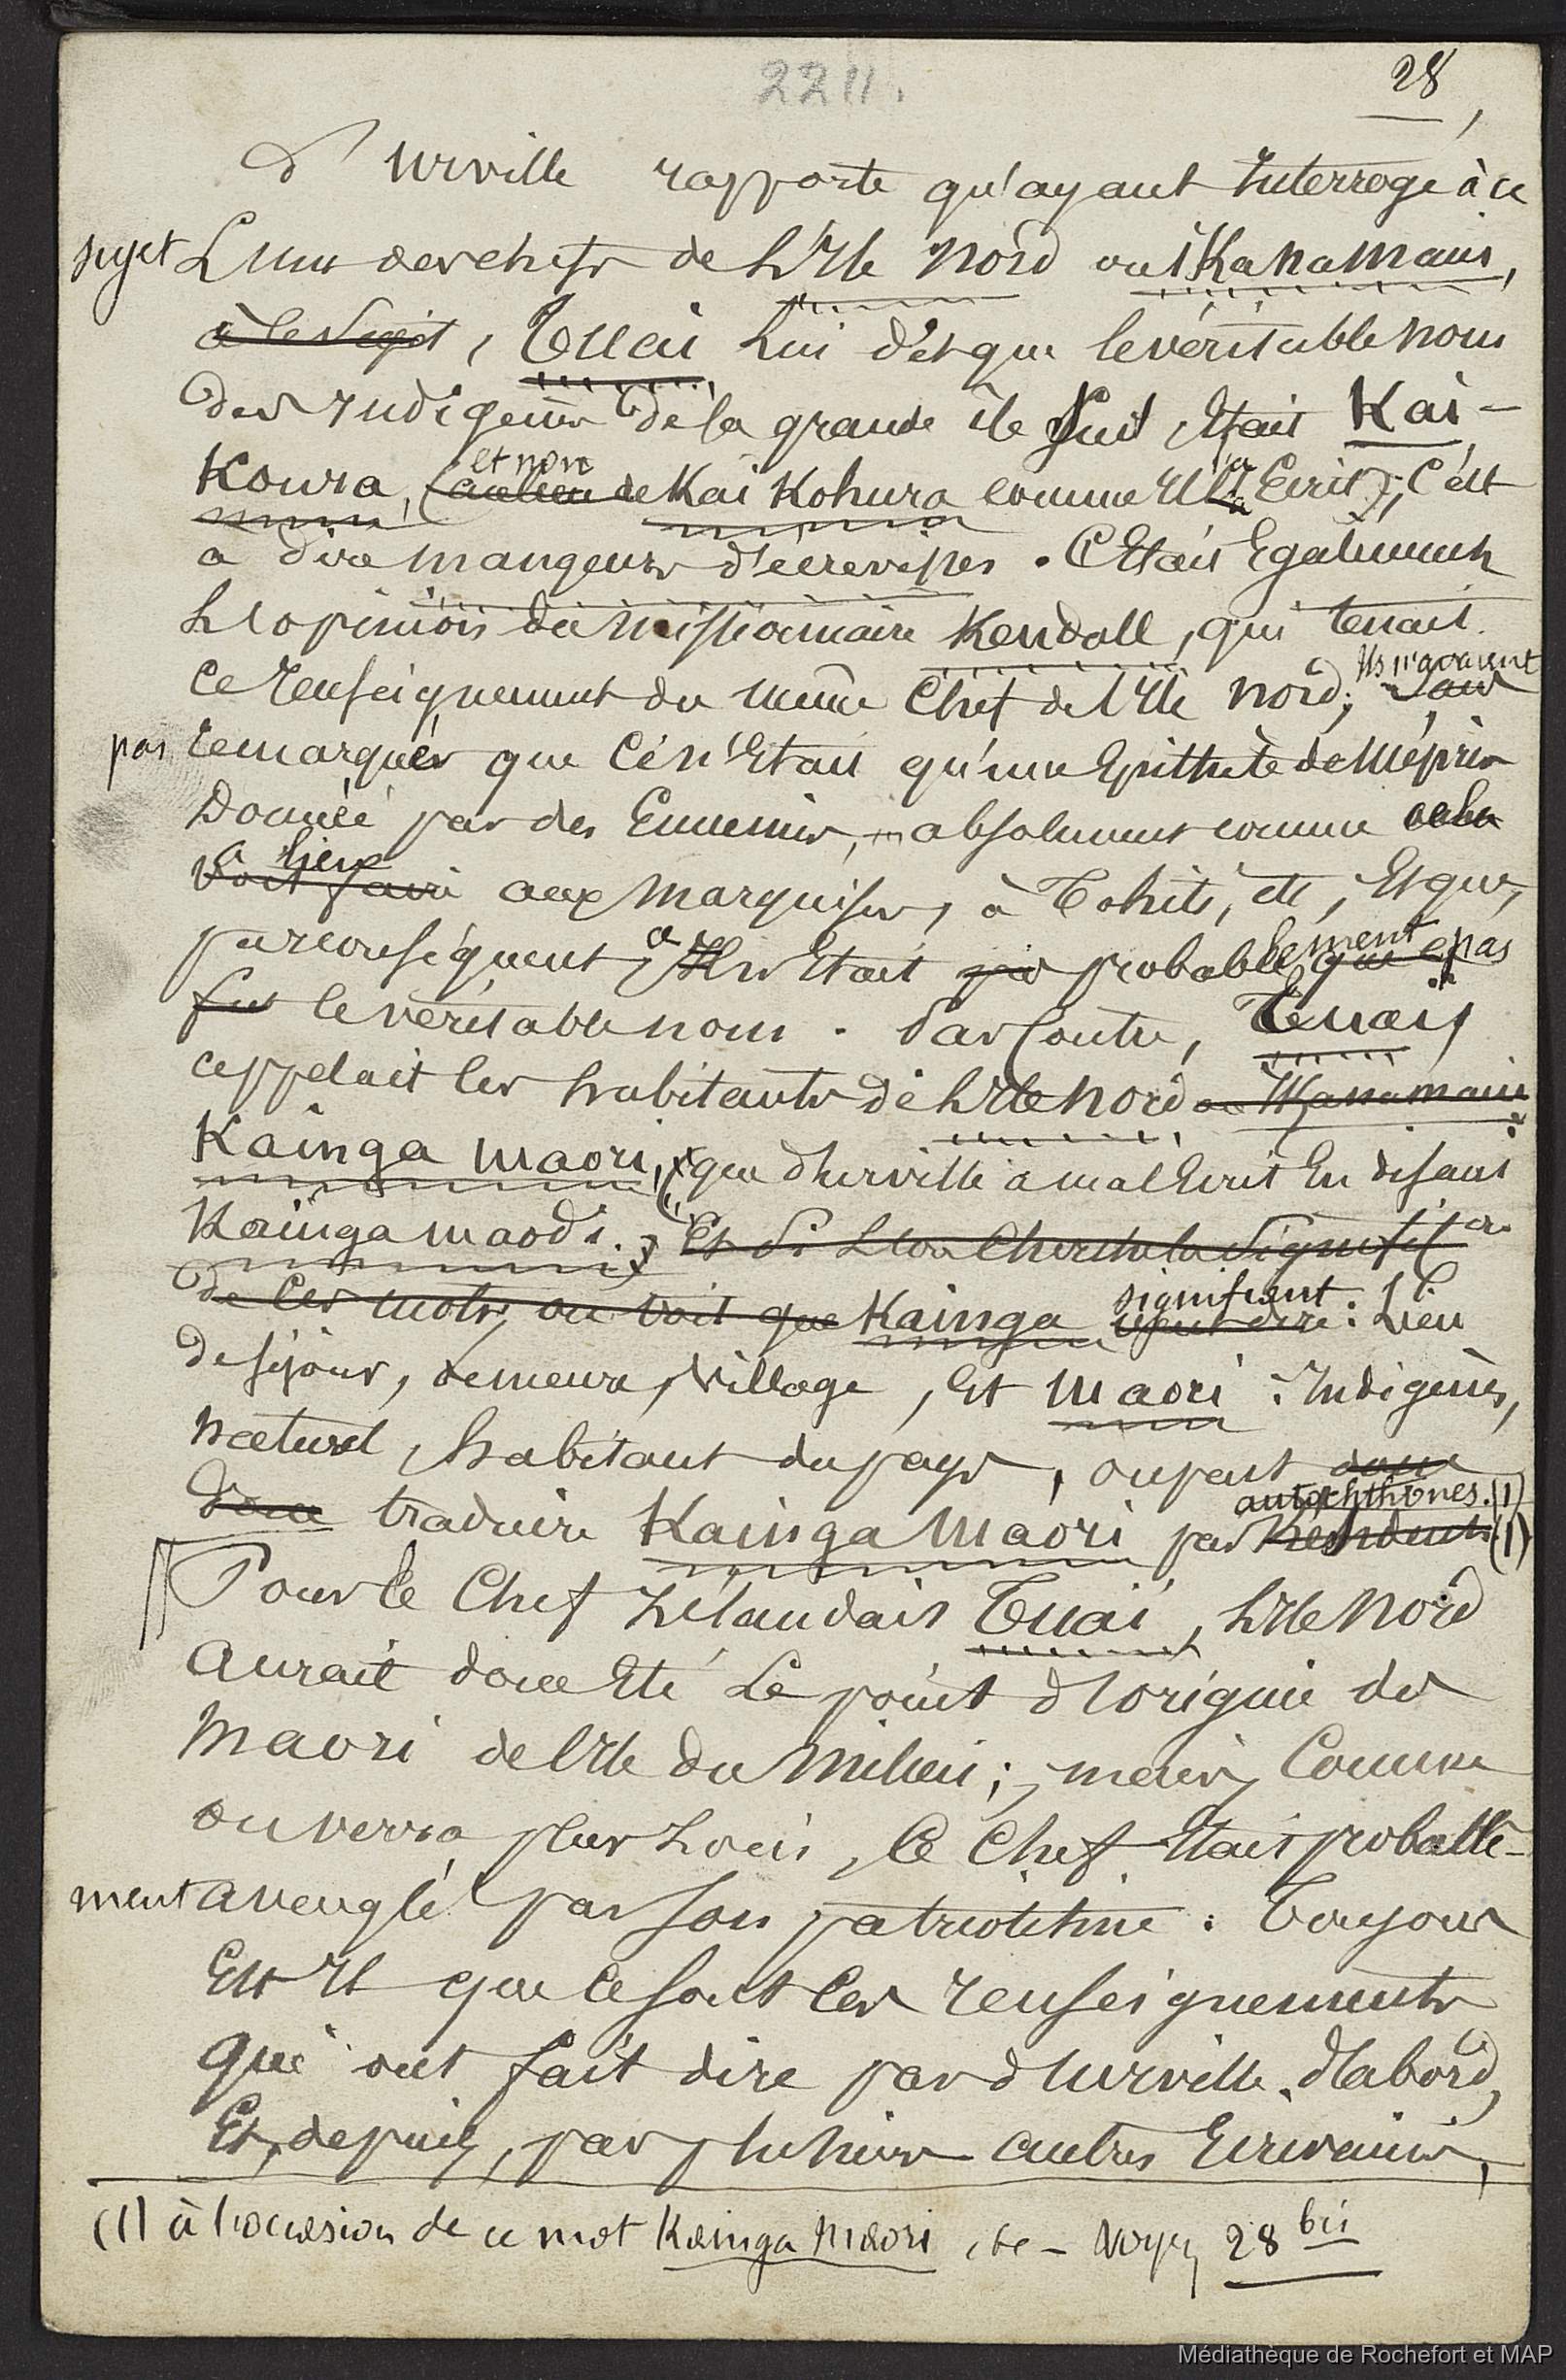 2211.
28
d'Urville rapporte qu'ayant Interrogé à ce
sujet L'un des chefs de L'Ile Nord ou Ika na Maui,
à ce Sujet, Tuai Lui dit que le véritable nom
des Indigènes de la grande île Sud Etait Kai-
Koura, (au lieu de et non Kai Kohura comme Il l'a Ecrit); C'est
à dire mangeurs d'écrevisses. C'Etait Egalement
L'opinion du Missionnaire Kendall, qui tenait
ce renseignement du même Chef de l'Ile Nord; Ils n'avaient
pas remarqué que Ce n'Etait qu'une Epithète de Mépris
Donnée par des Ennemis, absolument comme cela
a lieu aux Marquises, à Tahiti, etc, Et que,
par conséquent, ce n'Etait probablement pas
fut le véritable nom. Par Contre, Tuai
appelait les habitants de L'Ile Nord ou Ika na maui
Kainga maori, (que d'Urville a mal Ecrit En disant
Kainga maodi.) Et Si L'on Cherche la Signifion
de Ces mots, on voit que Kainga signifiant veut dire: Lieu
de séjour, demeure, Village, Et Maori: Indigènes,
naturel, habitant du pays, on peut donc
Donc traduire Kainga Maori par autochthones. (1) Résidents (1)
Pour le Chef Zélandais Tuai, L'Ile Nord
Aurait donc Eté Le point d'origine des
Maori de l'Ile du Milieu; mais, Comme
on verra plus Loin, Ce Chef Etait probable-
ment aveuglé par son patriotisme: Toujours
Est Il que ce sont Ces renseignements
Qui ont fait dire par d'Urville, d'abord,
Et, depuis, par plusieurs autres Ecrivains,
(1) à l'occasion de ce mot Kainga Maori, etc – Voyez 28 bis
Médiathèque de Rochefort et MAP